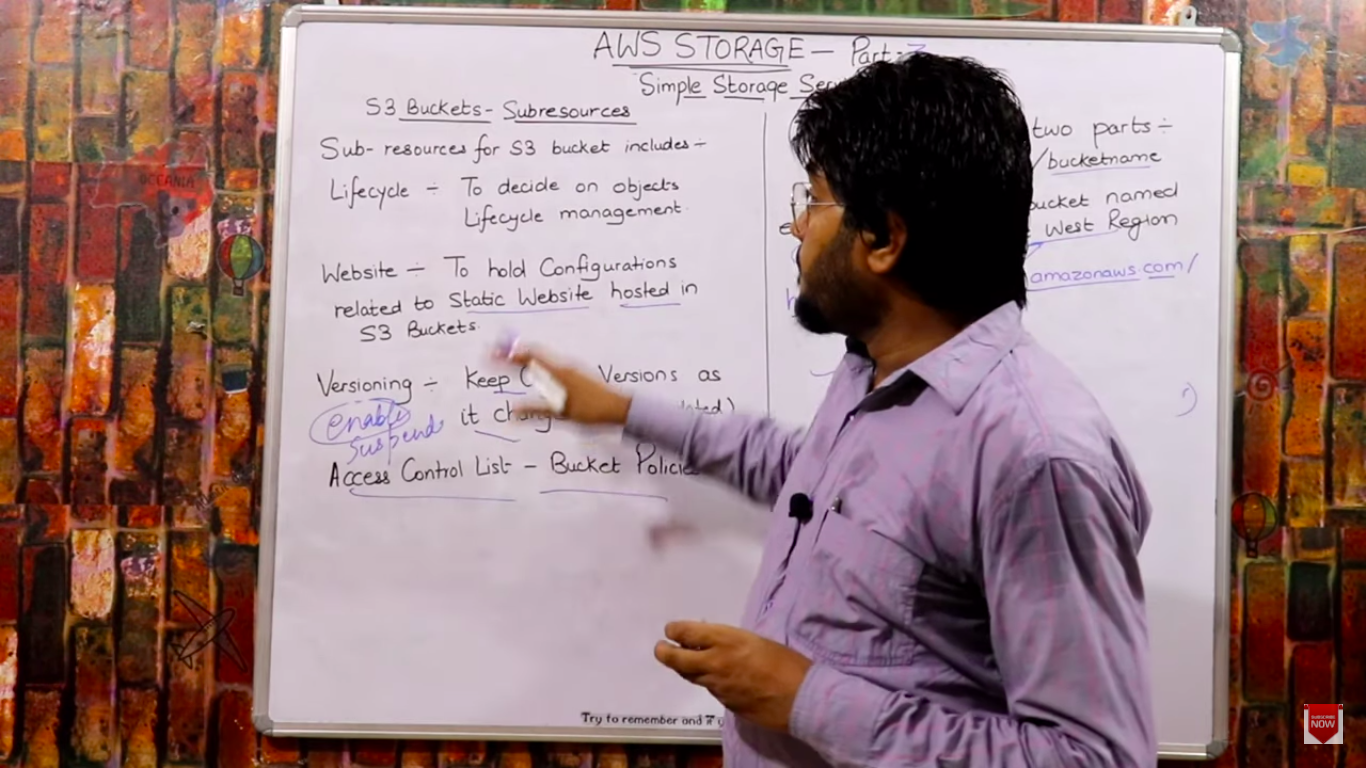 AWS STORAGE – Part-
Simple Storage Ser
S3 Buckets- Subresources
Sub-resources for S3 bucket includes ÷
Lifecycle ÷ To decide on objects
Lifecycle management.
Website – To hold Configurations
related to Static Website hosted in
S3 Buckets.
Versioning ÷ Keep Versions as
enable it chang ted)
Suspend
Access Control List – Bucket Policie
two parts ÷
/bucketname
bucket named
West Region
amazonaws.com/
Try to remember and
OCEANIA
SUBSCRIBE
NOW